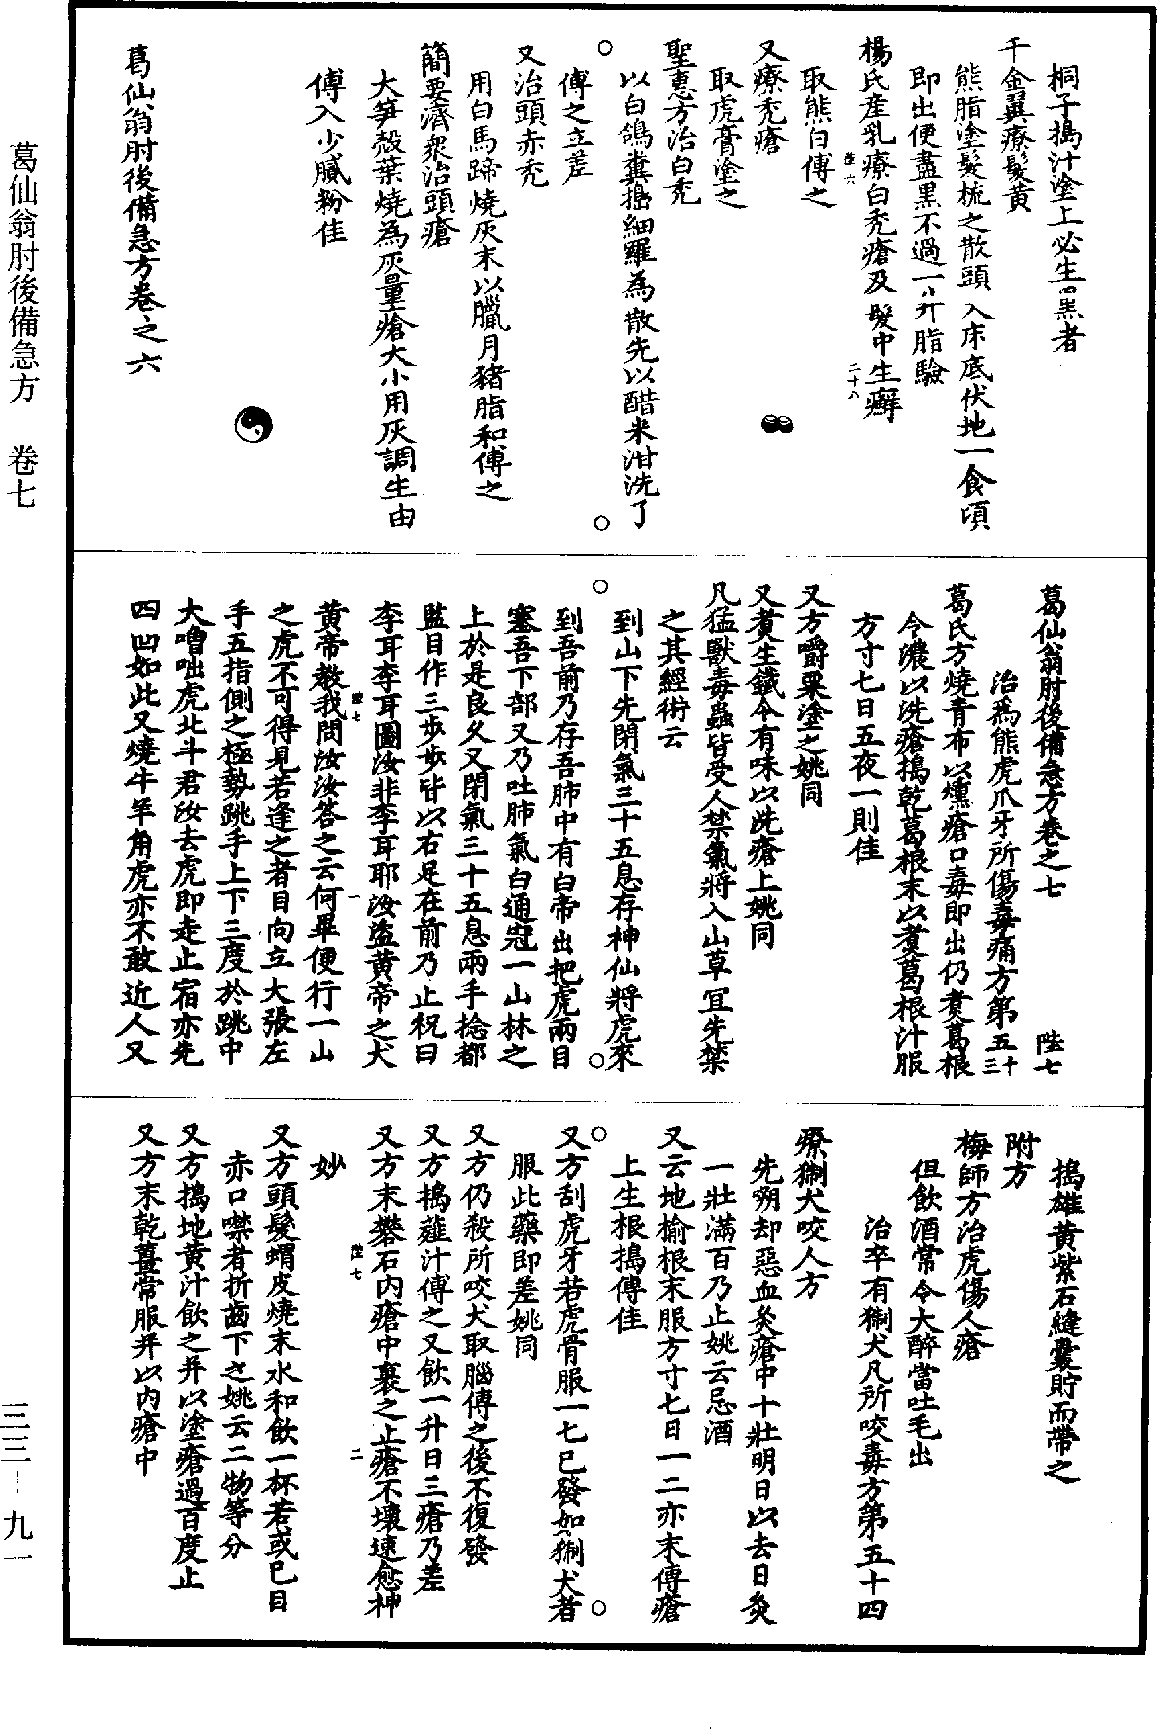 桐子搗汁塗上必生㸃黑者
千金翼療髮黃
熊脂塗髮梳之散頭入床底伏地一食頃
即出便盡黑不過一八升脂驗
楊氏産乳療白秃瘡及髮中生癬
陸六
二十八
取熊白傅之
又療秃瘡
取虎膏塗之
聖惠方治白秃
以白鴿糞搗細羅為散先以醋米泔洗了
傅之立差
又治頭赤秃
用白馬蹄燒灰末以臘月豬脂和傅之
簡要濟衆治頭瘡
大笋殼葉燒為灰量瘡大小用灰調生由
傅入少膩粉佳
葛仙翁肘後備急方卷之六
葛仙翁肘後備急方卷之七
陸七
治為熊虎爪牙所傷毒痛方第五十三
葛氏方燒青布以燻瘡口毒即出仍煑葛根
令濃以洗瘡搗乾葛根末以煑葛根汁服
方寸七日五夜一則佳
又方嚼粟塗之姚同
又煑生鐵令有味以洗瘡上姚同
凡猛獸毒蟲皆受人禁氣將入山草宜先禁
之其經術云
到山下先閉氣三十五息存神仙將虎來
到吾前乃存吾肺中有白帝出把虎兩目
塞吾下部又乃吐肺氣白通冠一山林之
上於是良久又閉氣三十五息兩手捻都
監目作三步步皆以右足在前乃止祝曰
李耳李耳圖汝非李耳耶汝盜黃帝之犬
陸七
一
黃帝教我問汝汝答之云何畢便行一山
之虎不可得見若逢之者目向立大張左
手五指側之極勢跳手上下三度於跳中
大喚咄虎北斗君汝去虎即走止宿亦先
四凹如此又燒牛羊角虎亦不敢近人又
搗雄黃紫石縫囊貯而帶之
附方
梅師方治虎傷人瘡
但飲酒常令大醉當吐毛出
治卒有猘犬凡所咬毒方第五十四
療猘犬咬人方
先嗍却惡血灸瘡中十壯明日以去日灸
一壯滿百乃止姚云忌酒
又云地榆根末服方寸七日一二亦末傅瘡
上生根搗傅佳
又方刮虎牙若虎骨服一七已發如猘犬者
服此藥即差姚同
又方仍殺所咬犬取腦傅之後不復發
又方搗薤汁傅之又飲一升日三瘡乃差
又方末礬石内瘡中裹之止瘡不壞速愈神
陸七
二
妙
又方頭髮蝟皮燒末水和飲一杯若或已目
赤口噤者折齒下之姚云二物等分
又方搗地黃汁飲之并以塗瘡過百度止
又方末乾薑常服并以内瘡中
葛仙翁肘後備急方 卷七
三三—九一